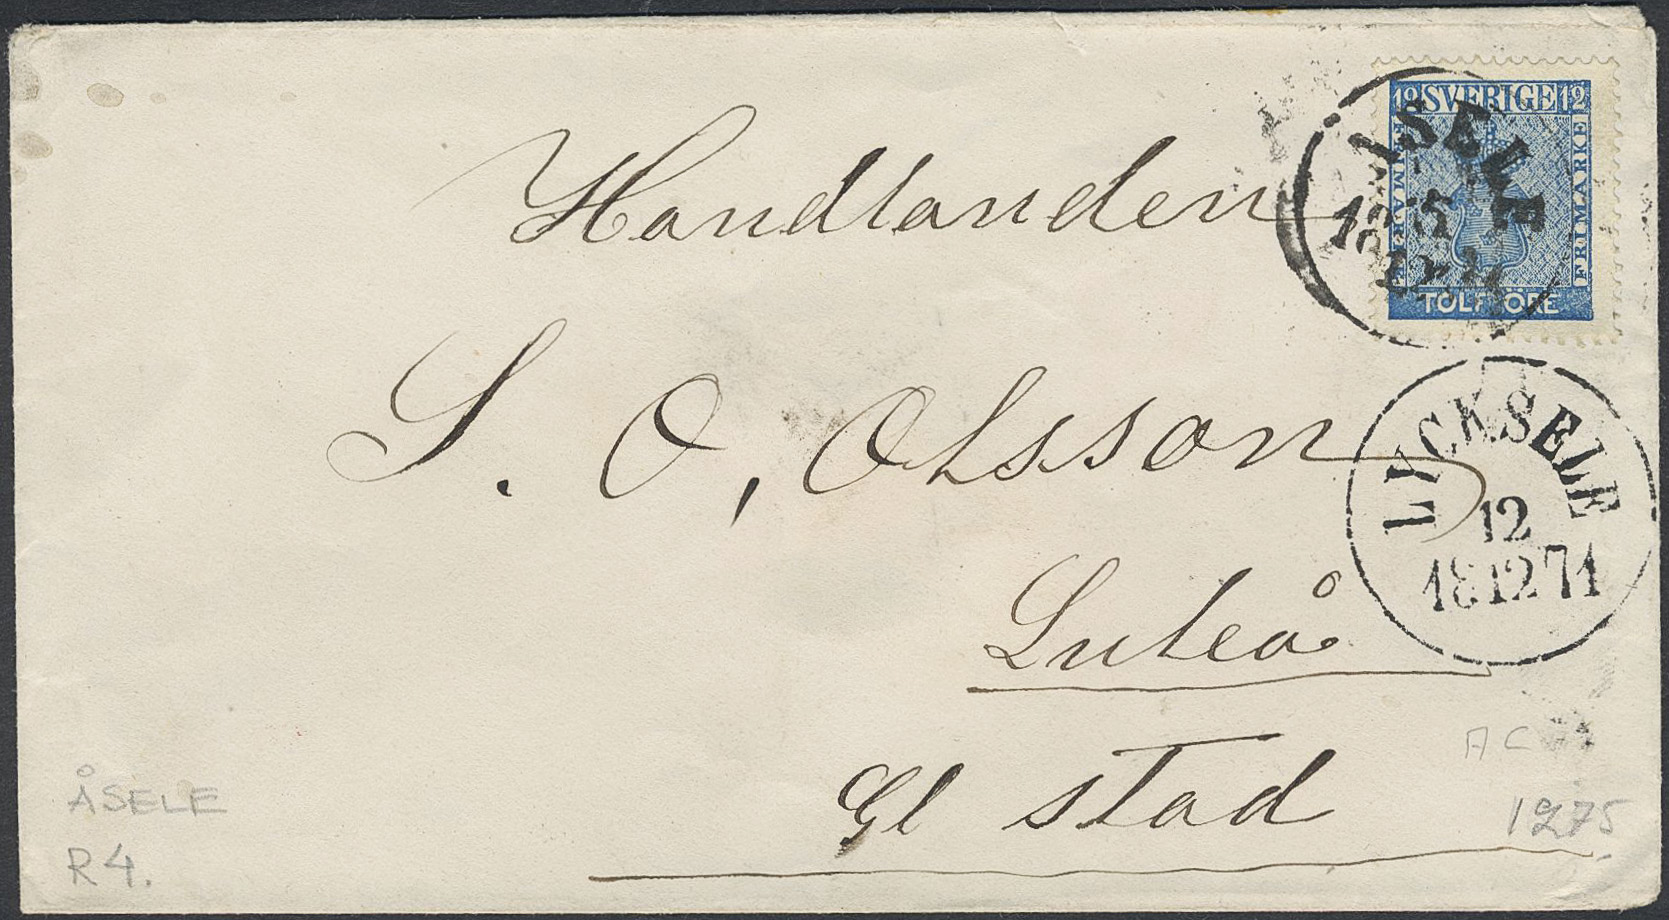 12 SVERIGE 12
FRIMÄRKE
FRIMÄRKE
TOLF ÖRE
ÅSELE
Handlanden
S. O, Olsson
LYCKSELE
12
18 12 71
Luleå
Gl stad
AC
ÅSELE
R 4.
1275